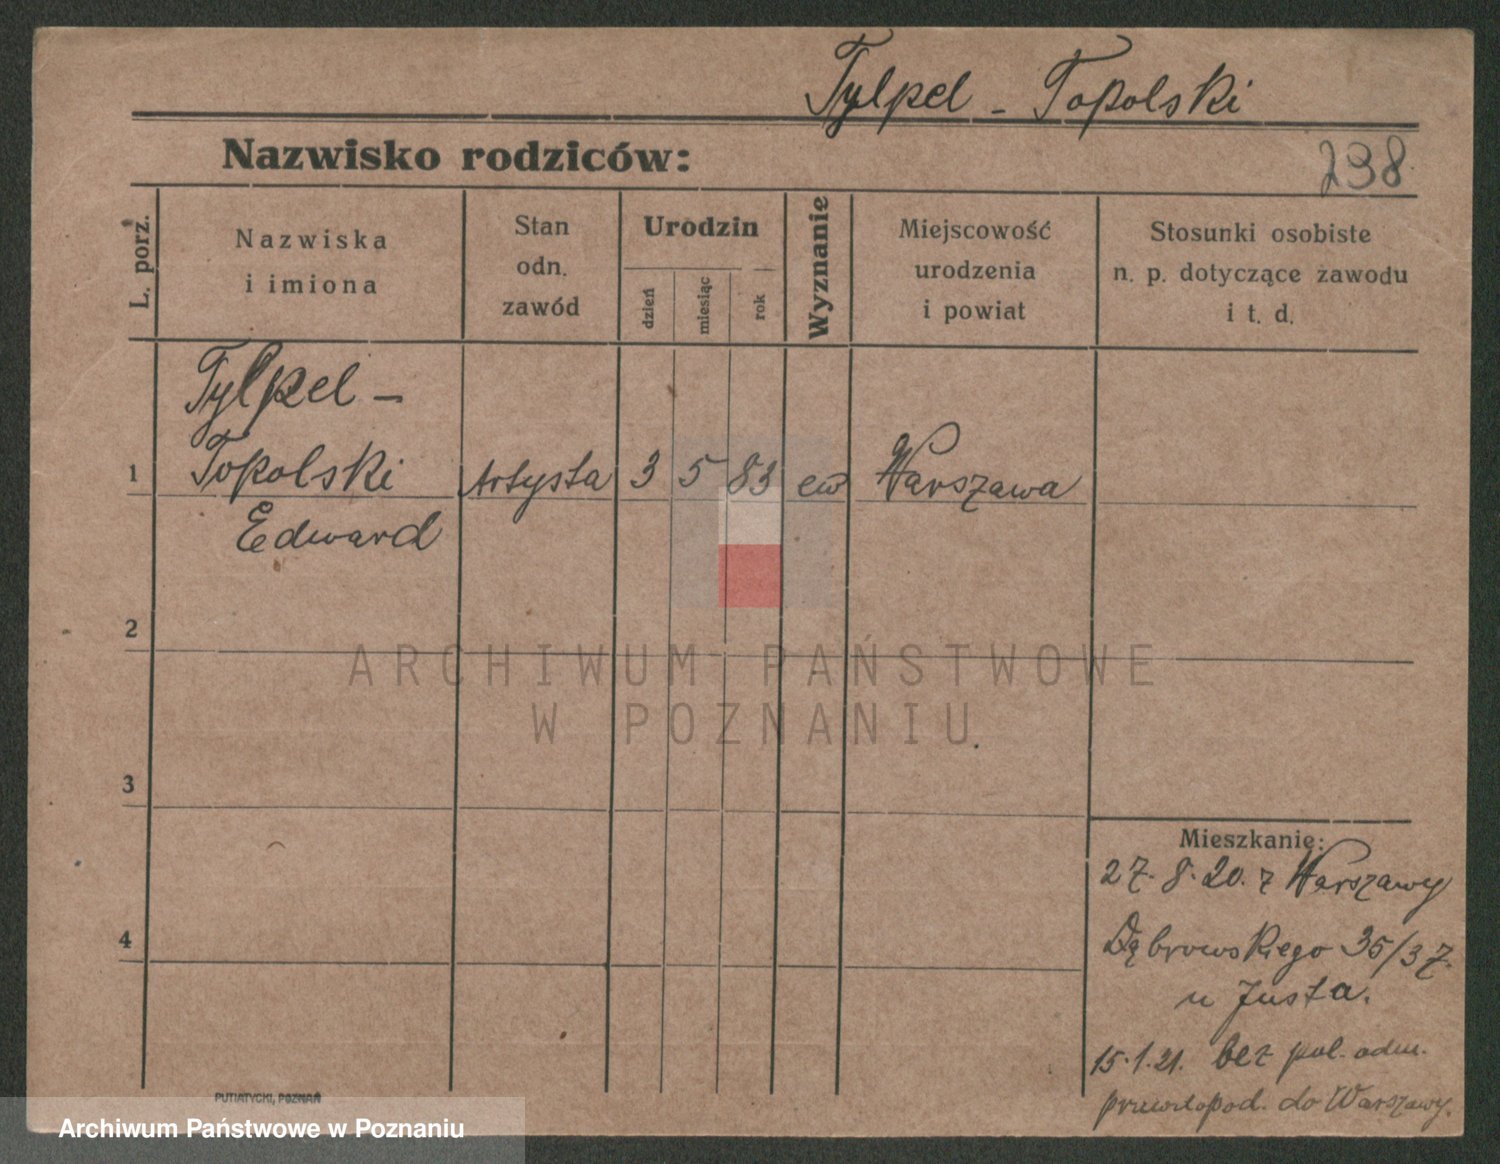 Tylpel - Topolski
Nazwisko rodziców:
238
L. porz.
Nazwiska
i imiona
Stan
odn.
zawód
Urodzin
dzień
miesiąc
rok
Wyznanie
Miejscowość
urodzenia
i powiat
Stosunki osobiste
n. p. dotyczące zawodu
i t. d.
Tylpel -
1 Topolski Artysta 3 5 83 ew Warszawa
Edward
2
ARCHIWUM PAŃSTWOWE
W POZNANIU
3
Mieszkanie:
27. 8. 20. z Warszawy
4
Dąbrowskiego 35/37.
u Justa.
15.1.21. bez pol. odm.
do Warszawy.
PUTIATYCKI, POZNAŃ
Archiwum Państwowe w Poznaniu